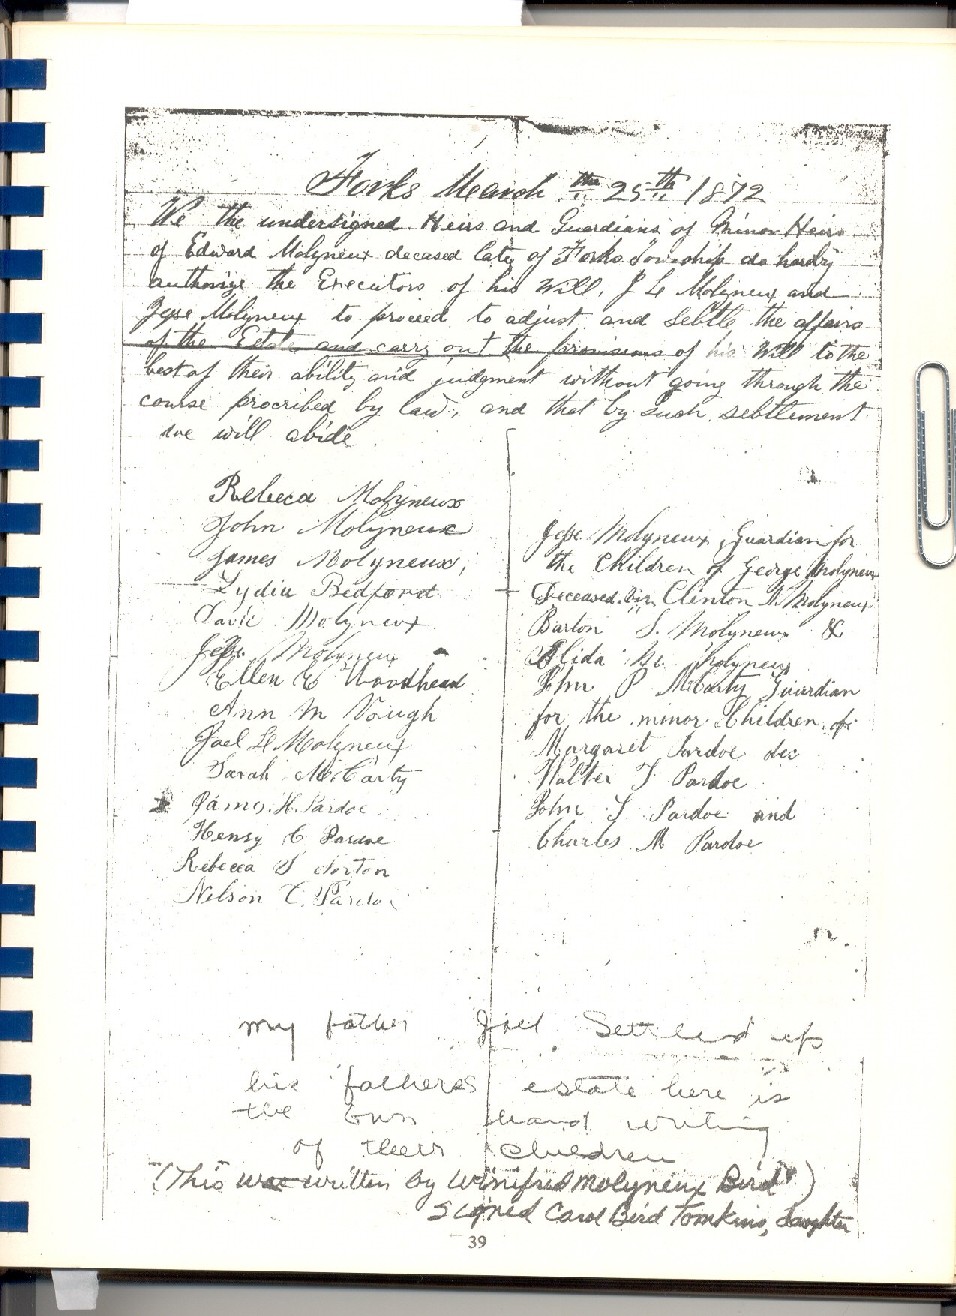 Forks March the 25th 1872
We the undersigned Heirs and Guardians of Minor Heirs
of Edward Molyneux decased late of Forks Township do hardy
authorize the Executors of his Will, J L Molyneux and
Jesse Molyneux to proceed to adjust and settle the affairs
of the Estate and carry out the provisions of his Will to the
best of their ability and judgment without going through the
course procribed by law, and that by such settlement
we will abide
Rebecca Molyneux
John Molyneux
James Molyneux,
Lydia Bedford
Davic Molyneux
Jesse Molyneux
Ellen C Woodhead
Ann M Vough
Joel L Molyneux
Sarah McCarty
James H. Pardoe
Henry C Pardoe
Rebecca S Norton
Nelson C. Pardoe
Jesse Molyneux, Guardian for
the Children of George Molyneux
Deceased. Clinton Molyneux
Barton S. Molyneux &
Alida M. Molyneux
John P McCarty Guardian
for the minor Children of
Margaret Pardoe dec
Walter T Pardoe
John T Pardoe and
Charles M Pardoe
my father Joel Settled up
his fathers estate here is
the own hand writing
of their children
"(This was written by Winifred Molyneux Bird")
signed Carol Bird Tomkins, daughter
39